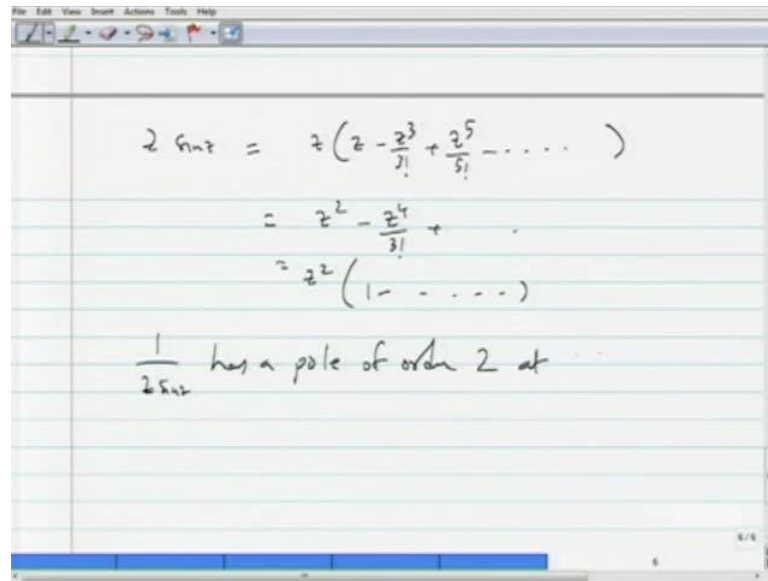 File Edit View Insert Actions Tools Help
z sin z = z ( z - z^3/3! + z^5/5! - ..... )
= z^2 - z^4/3! + .
= z^2 ( 1 - - .... )
1/(z sin z) has a pole of order 2 at ...
6/6
6